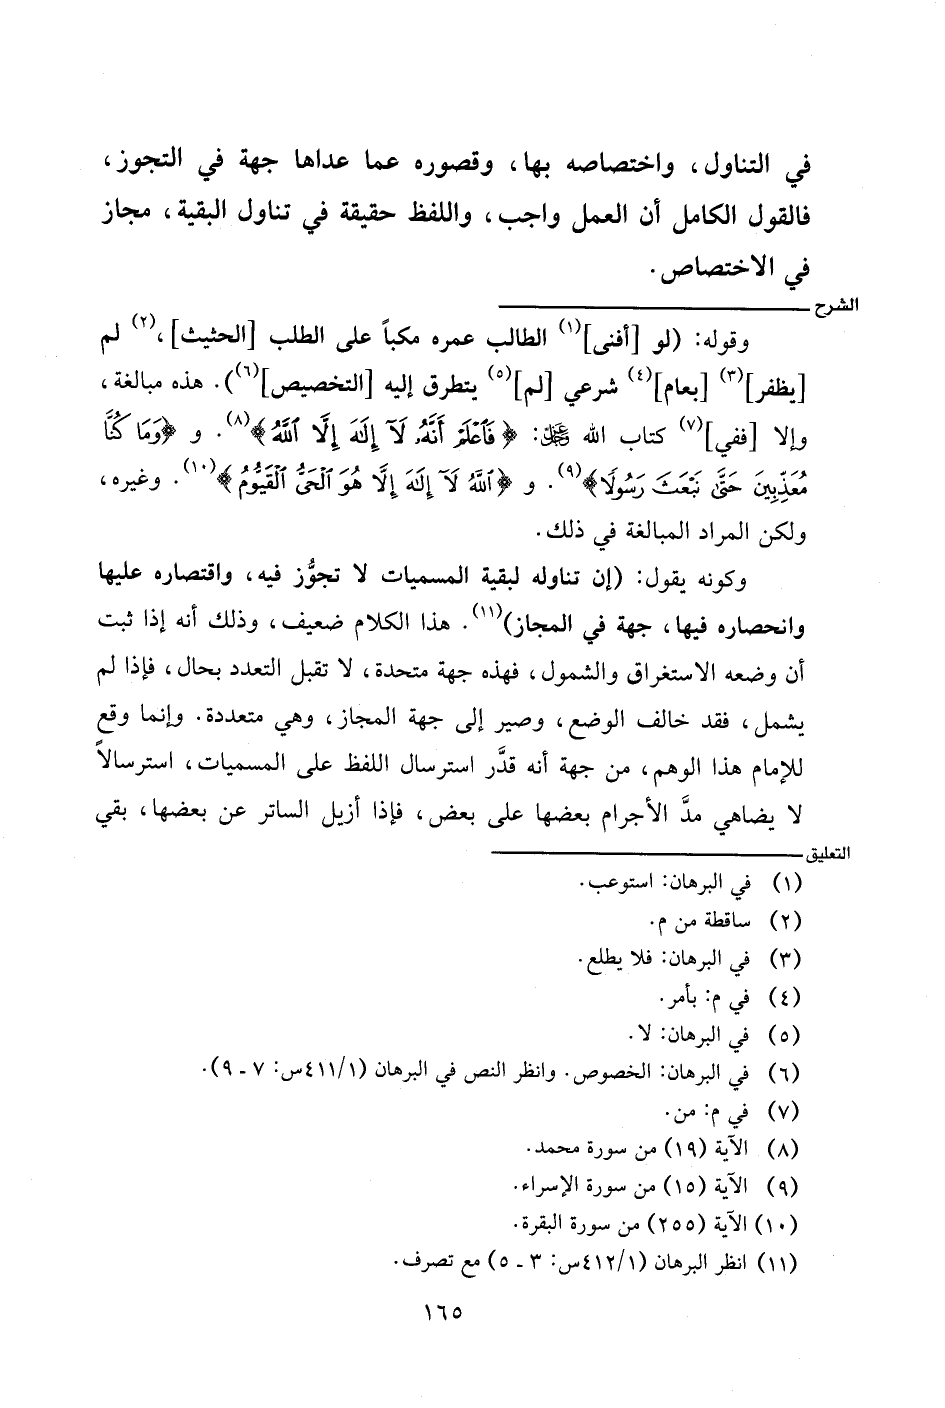 في التناول، واختصاصه بها، وقصوره عما عداها جهة في التجوز،
فالقول الكامل أن العمل واجب، واللفظ حقيقة في تناول البقية، مجاز
في الاختصاص.
الشرح
وقوله: (لو [أفنى](١) الطالب عمره مكباً على الطلب [الحثيث]،(٢) لم
[يظفر](٣) [بعام](٤) شرعي [لم](٥) يتطرق إليه [التخصيص](٦)). هذه مبالغة،
وإلا [ففي](٧) كتاب الله ﷻ: ﴿فَٱعۡلَمۡ أَنَّهُۥ لَآ إِلَٰهَ إِلَّا ٱللَّهُ﴾(٨). و ﴿وَمَا كُنَّا
مُعَذِّبِينَ حَتَّىٰ نَبۡعَثَ رَسُولًا﴾(٩). و ﴿ٱللَّهُ لَآ إِلَٰهَ إِلَّا هُوَ ٱلۡحَيُّ ٱلۡقَيُّومُ﴾(١٠). وغيره،
ولكن المراد المبالغة في ذلك.
وكونه يقول: (إن تناوله لبقية المسميات لا تجوُّز فيه، واقتصاره عليها
وانحصاره فيها، جهة في المجاز)(١١). هذا الكلام ضعيف، وذلك أنه إذا ثبت
أن وضعه الاستغراق والشمول، فهذه جهة متحدة، لا تقبل التعدد بحال، فإذا لم
يشمل، فقد خالف الوضع، وصير إلى جهة المجاز، وهي متعددة. وإنما وقع
للإمام هذا الوهم، من جهة أنه قدَّر استرسال اللفظ على المسميات، استرسالاً
لا يضاهي مدَّ الأجرام بعضها على بعض، فإذا أزيل الساتر عن بعضها، بقي
التعليق
(١) في البرهان: استوعب.
(٢) ساقطة من م.
(٣) في البرهان: فلا يطلع.
(٤) في م: بأمر.
(٥) في البرهان: لا.
(٦) في البرهان: الخصوص. وانظر النص في البرهان (٤١١/١س: ٧ ـ ٩).
(٧) في م: من.
(٨) الآية (١٩) من سورة محمد.
(٩) الآية (١٥) من سورة الإسراء.
(١٠) الآية (٢٥٥) من سورة البقرة.
(١١) انظر البرهان (٤١٢/١س: ٣ ـ ٥) مع تصرف.
١٦٥